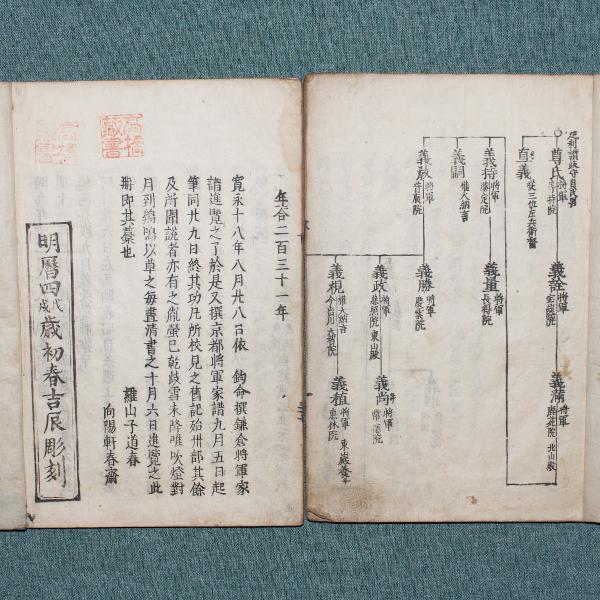 尊氏 將軍 等持院
義詮 將軍
義滿 將軍 鹿苑院 北山殿
直義 從三位左兵衛督
義持 將軍 勝定院
義量 將軍 長得院
義嗣 權大納言
義教 將軍 普廣院
義勝 將軍 慶雲院
義政 將軍 慈照院 東山殿
義尚 將軍 常德院
義視 權大納言 今出川
義植 將軍
年合二百三十一年
寬永十八年八月廿八日依 鈞命撰鎌倉將軍家
譜進覽之了於是又撰京都將軍家譜九月五日起
筆同廿九日終其功凡所校見之舊記殆卅部其餘
及所聞說者亦有之胤螢已乾歧雪未降唯吹燈對
月以草之每晝清書之十月六日進覽之此
冊即其藁也
羅山子道春
向陽軒春齋
明曆四戊戌歲初春吉辰彫刻
高橋藏書